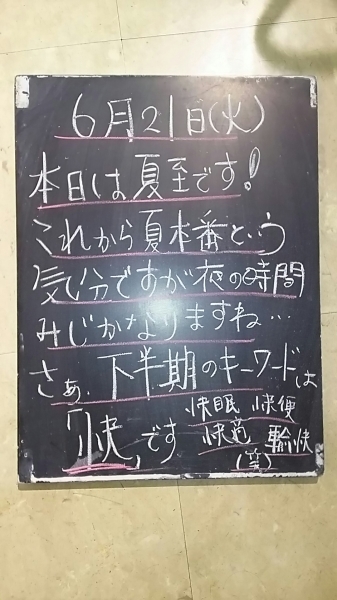 6月21日(火)
本日は夏至です!
これから夏本番という
気分ですが夜の時間
みじかなりますね…
さぁ、下半期のキーワードは
「快」です
快眠 快便
快適 愉快
(笑)